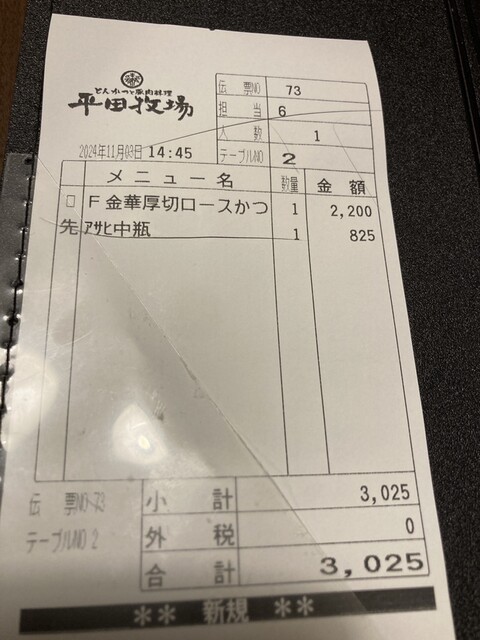 とんかつと豚肉料理
平田牧場
伝票NO 73
担当 6
人数 1
2024年11月03日 14:45
テーブルNO 2
メニュー名 数量 金額
□ F金華厚切ロースかつ 1 2,200
先 アサヒ中瓶 1 825
伝票NO-73 小計 3,025
テーブルNO 2 外税 0
合計 3,025
** 新規 **